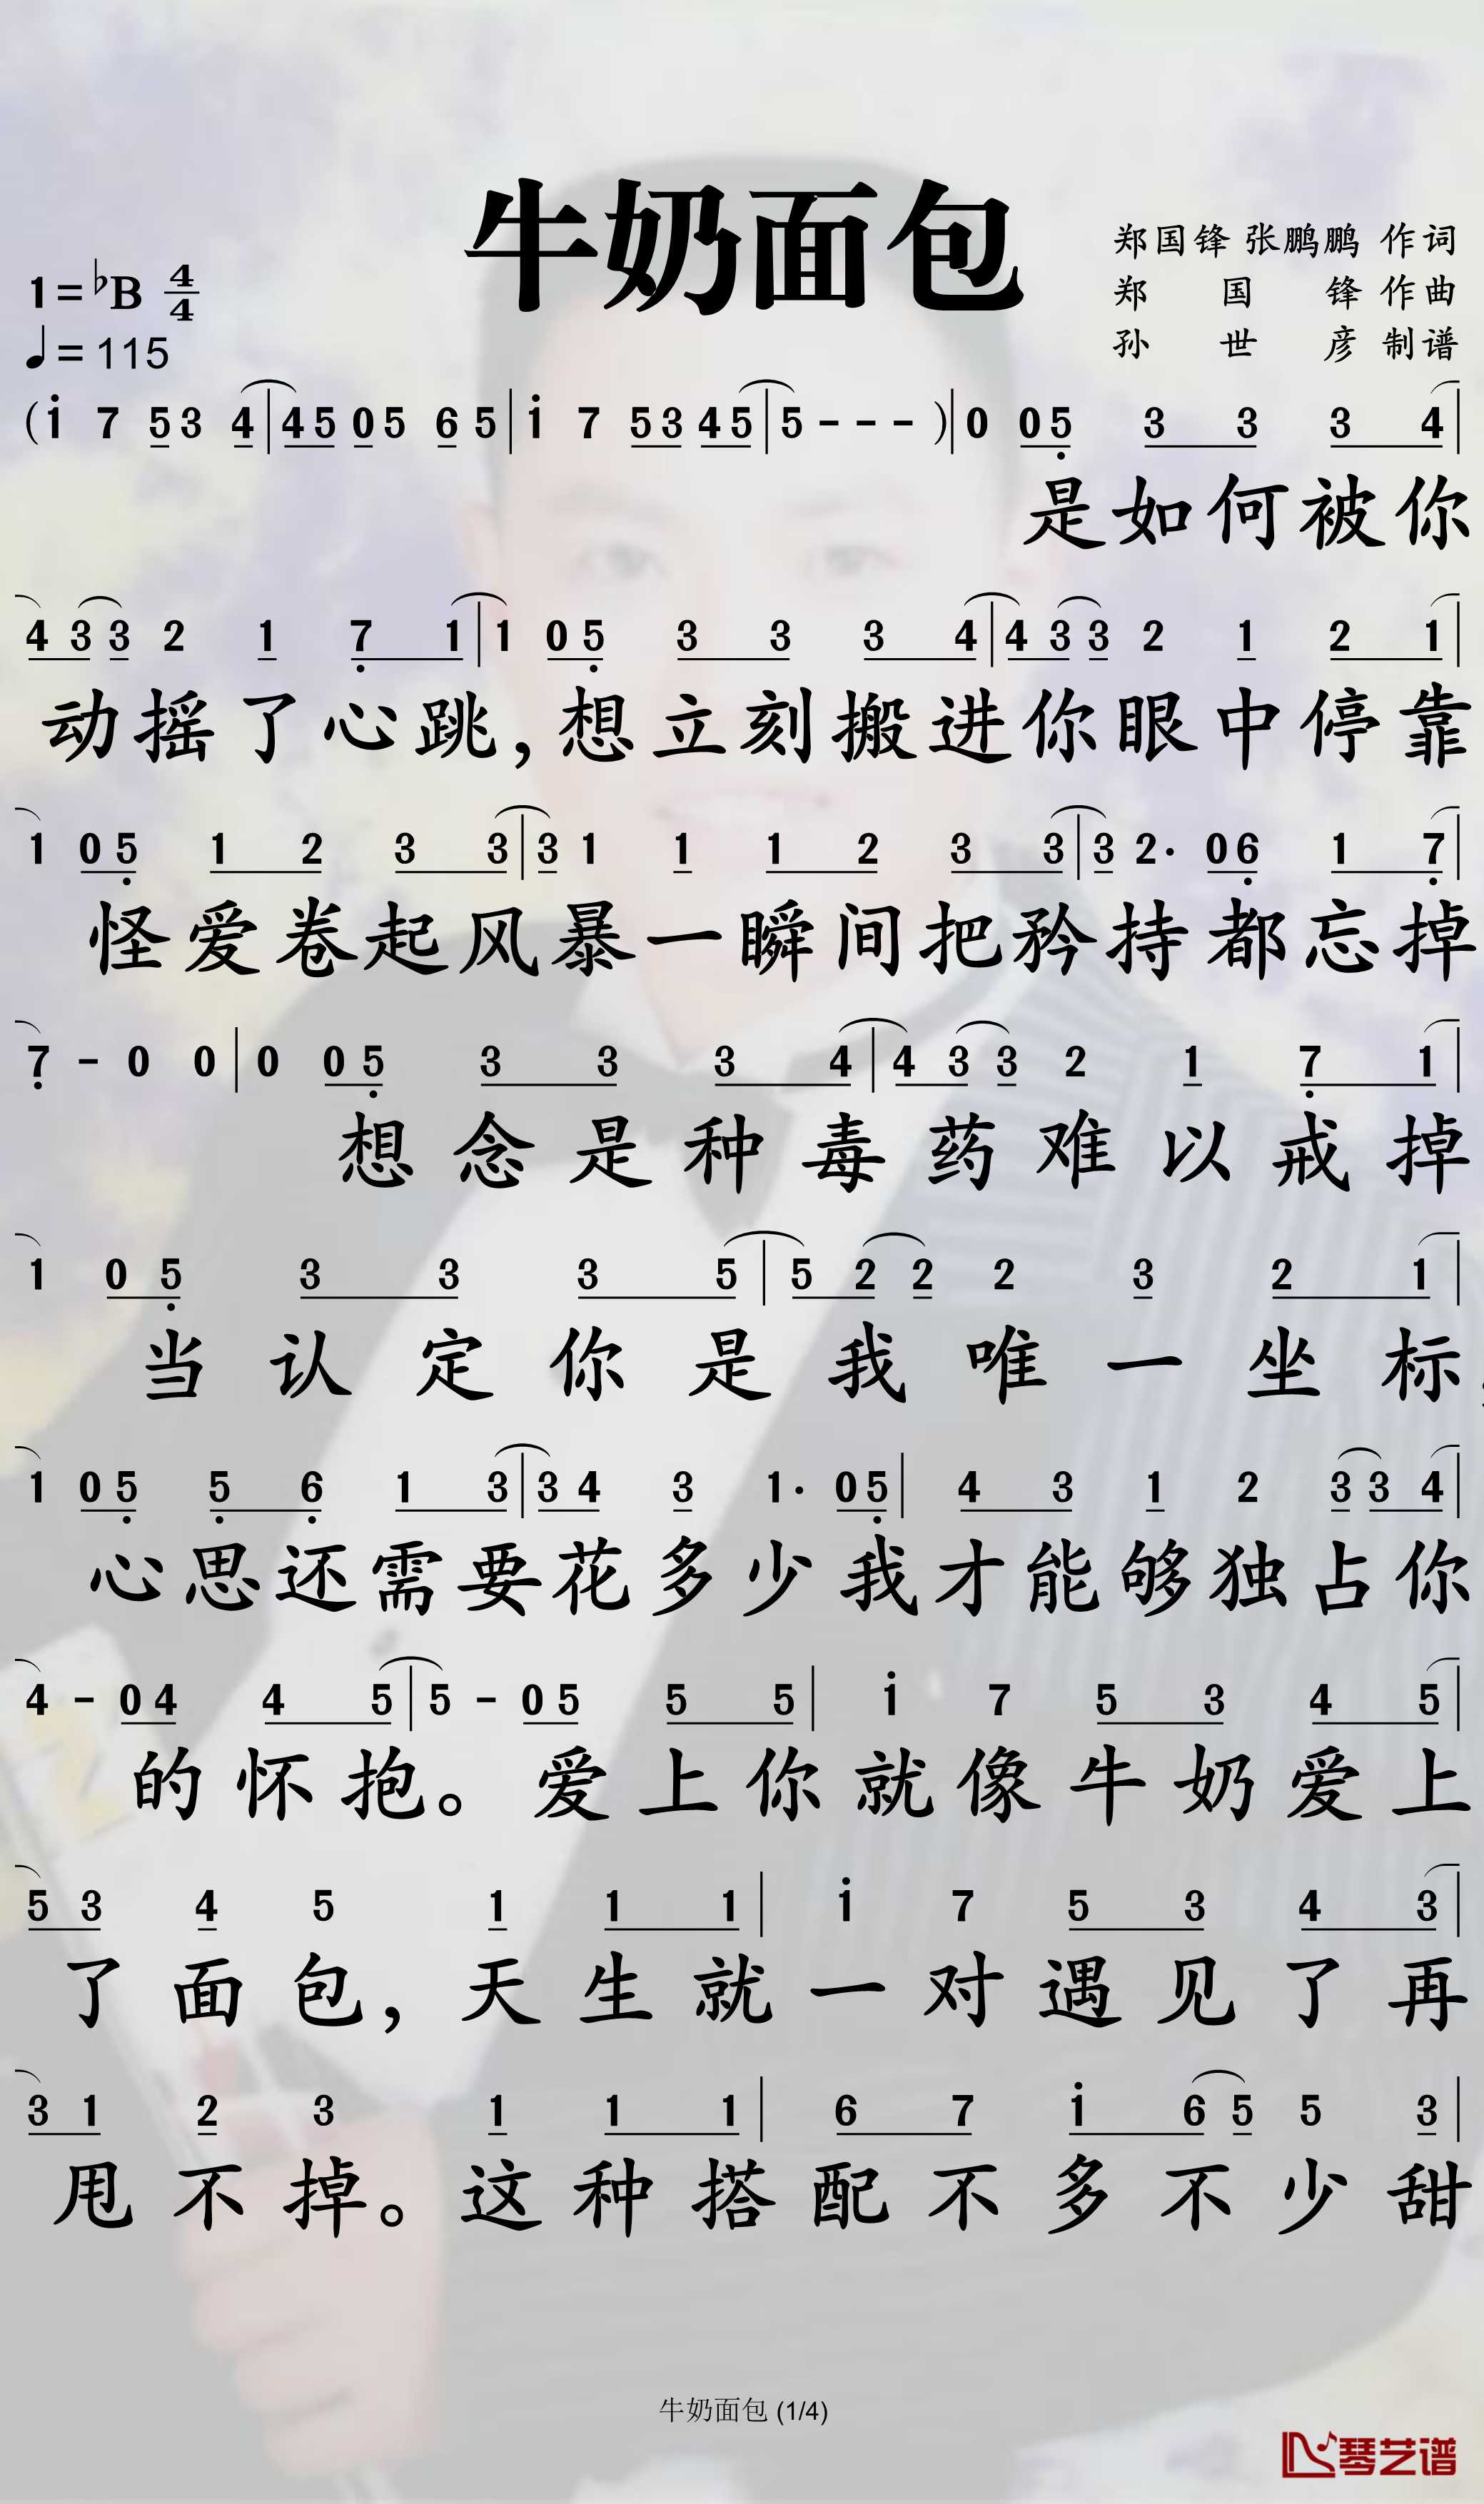 牛奶面包
郑国锋 张鹏鹏 作词
郑国锋 作曲
孙世彦 制谱
1=♭B 4/4
♩=115
(i 7 5 3 4|4 5 0 5 6 5|i 7 5 3 4 5|5 - - - )|0 0 5 3 3 3 4|
是如何被你
4 3 3 2 1 7 1|1 0 5 3 3 3 4|4 3 3 2 1 2 1|
动摇了心跳,想立刻搬进你眼中停靠
1 0 5 1 2 3 3|3 1 1 1 2 3 3|3 2· 0 6 1 7|
怪爱卷起风暴一瞬间把矜持都忘掉
7 - 0 0|0 0 5 3 3 3 4|4 3 3 2 1 7 1|
想念是种毒药难以戒掉
1 0 5 3 3 3 5|5 2 2 2 3 2 1|
当认定你是我唯一坐标
1 0 5 5 6 1 3|3 4 3 1· 0 5|4 3 1 2 3 3 4|
心思还需要花多少我才能够独占你
4 - 0 4 4 5|5 - 0 5 5 5|i 7 5 3 4 5|
的怀抱。爱上你就像牛奶爱上
5 3 4 5 1 1 1|i 7 5 3 4 3|
了面包,天生就一对遇见了再
3 1 2 3 1 1 1|6 7 i 6 5 5 3|
甩不掉。这种搭配不多不少甜
牛奶面包 (1/4)
琴艺谱